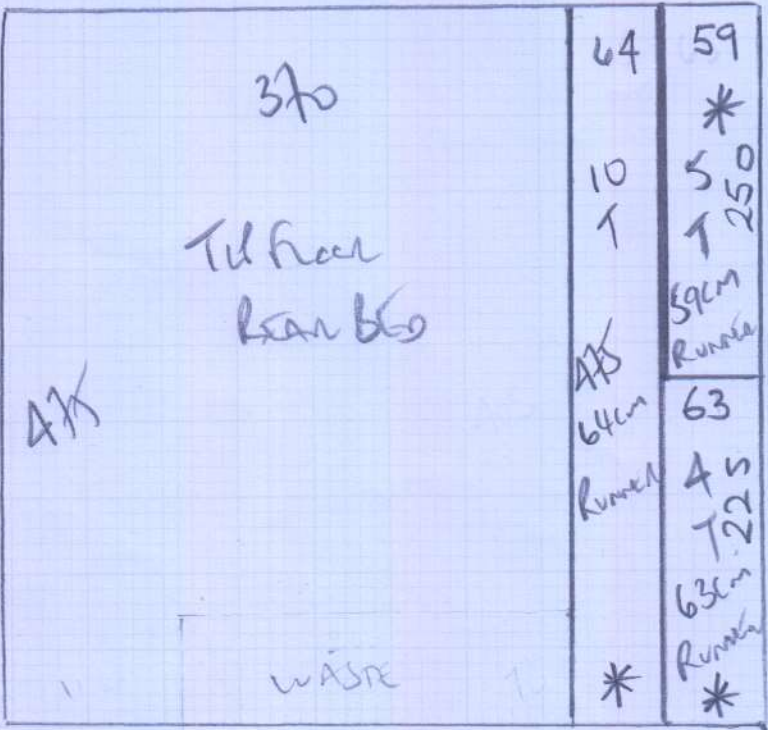 370
Floor
REAR BED
475
WASTE
64
10
T
475
64cm
Runner
*
59
*
5
T
250
59cm
Runner
63
4
T
225
63cm
Runner
*